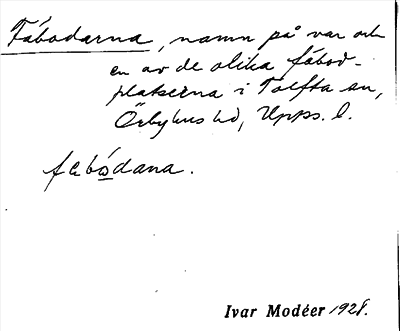 Fäbodarna, namn på var och
en av de olika fäbod-
platserna i Tolfta sn,
Örbyhus hd, Upps. l.
fäbódana.
Ivar Modéer 1928.